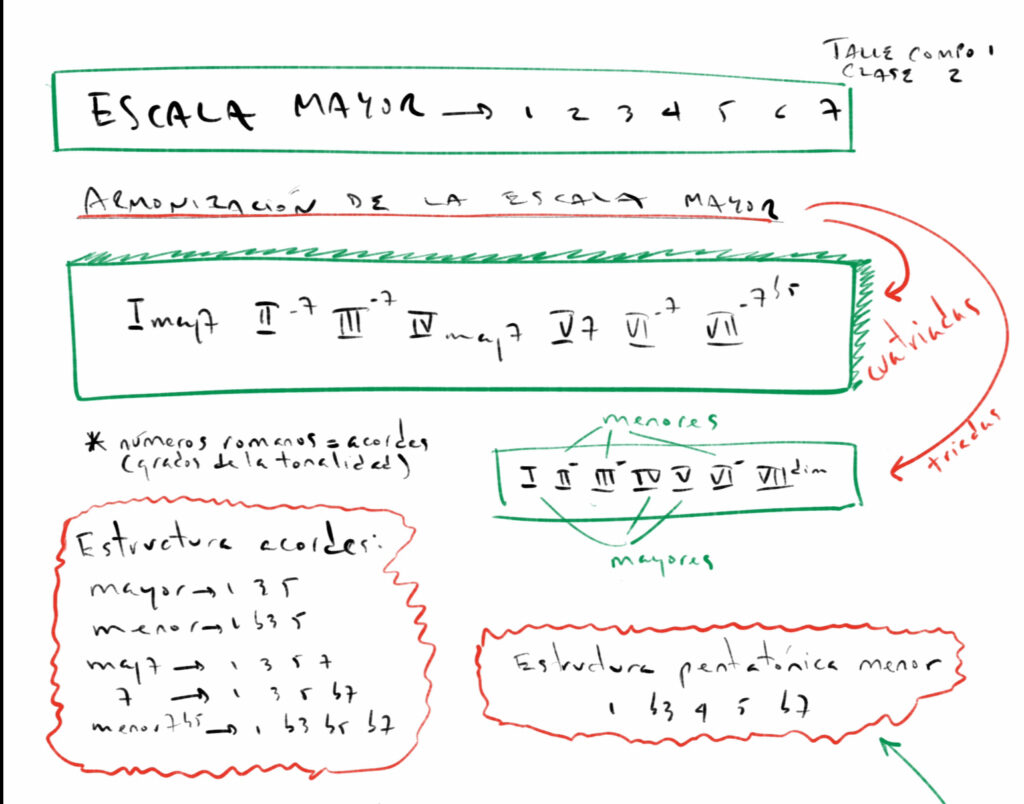 TALLE COMPO 1
CLASE 2
ESCALA MAYOR → 1 2 3 4 5 6 7
ARMONIZACIÓN DE LA ESCALA MAYOR
Imaj7 II-7 III-7 IVmaj7 V7 VI-7 VII-7b5
cuatriadas
triadas
* números romanos = acordes
(grados de la tonalidad)
menores
I II- III- IV V VI- VIIdim
mayores
Estructura acordes:
mayor → 1 3 5
menor → 1 b3 5
maj7 → 1 3 5 7
7 → 1 3 5 b7
menor7b5 → 1 b3 b5 b7
Estructura pentatónica menor
1 b3 4 5 b7